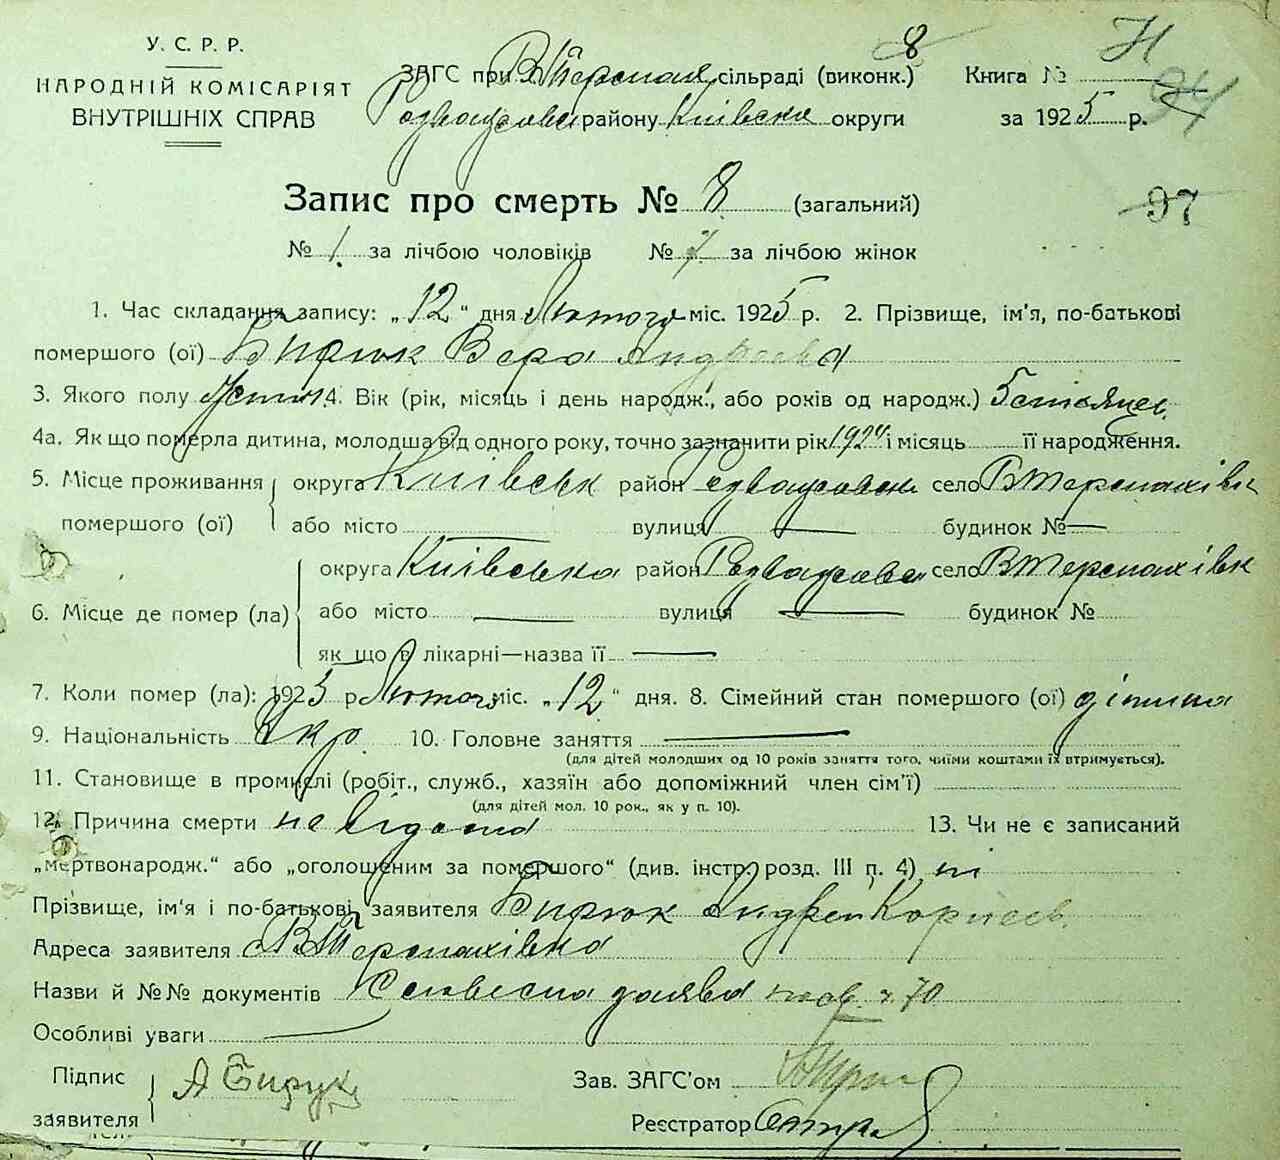 У. С. Р. Р.
НАРОДНІЙ КОМІСАРІЯТ
ВНУТРІШНІХ СПРАВ
8
ЗАГС при сільраді (виконк.)
району Київська округи
Книга №
за 1925 р.
94
97
Запис про смерть № 8 (загальний)
№ 1. за лічбою чоловіків № 7 за лічбою жінок
1. Час складання запису: „12“ дня Лютого міс. 1925 р. 2. Прізвище, ім'я, по-батькові
помершого (ої) Бирюк Вера Андреева
3. Якого полу 4. Вік (рік, місяць і день народж., або років од народж.) 5
4а. Як що померла дитина, молодша від одного року, точно зазначити рік 1924 і місяць її народження.
5. Місце проживання помершого (ої) округа Київськ район село
або місто вулиця — будинок № —
6. Місце де помер (ла) округа Київська район село
або місто — вулиця — будинок №
як що в лікарні—назва її —
7. Коли помер (ла): 1925 р Лютого міс. „12“ дня. 8. Сімейний стан помершого (ої) дітина
9. Національність Укр. 10. Головне заняття —
(для дітей молодших од 10 років заняття того, чиїми коштами їх втримується).
11. Становище в промислі (робіт., служб., хазяїн або допоміжний член сім'ї)
(для дітей мол. 10 рок., як у п. 10).
12. Причина смерти не відома 13. Чи не є записаний
„мертвонародж.“ або „оголошеним за помершого“ (див. інстр. розд. III п. 4) ні
Прізвище, ім'я і по-батькові заявителя Бирюк Андрей Корнеев.
Адреса заявителя
Назви й №№ документів Словесна заява 70
Особливі уваги
Підпис заявителя А Бирук
Зав. ЗАГС'ом
Реєстратор